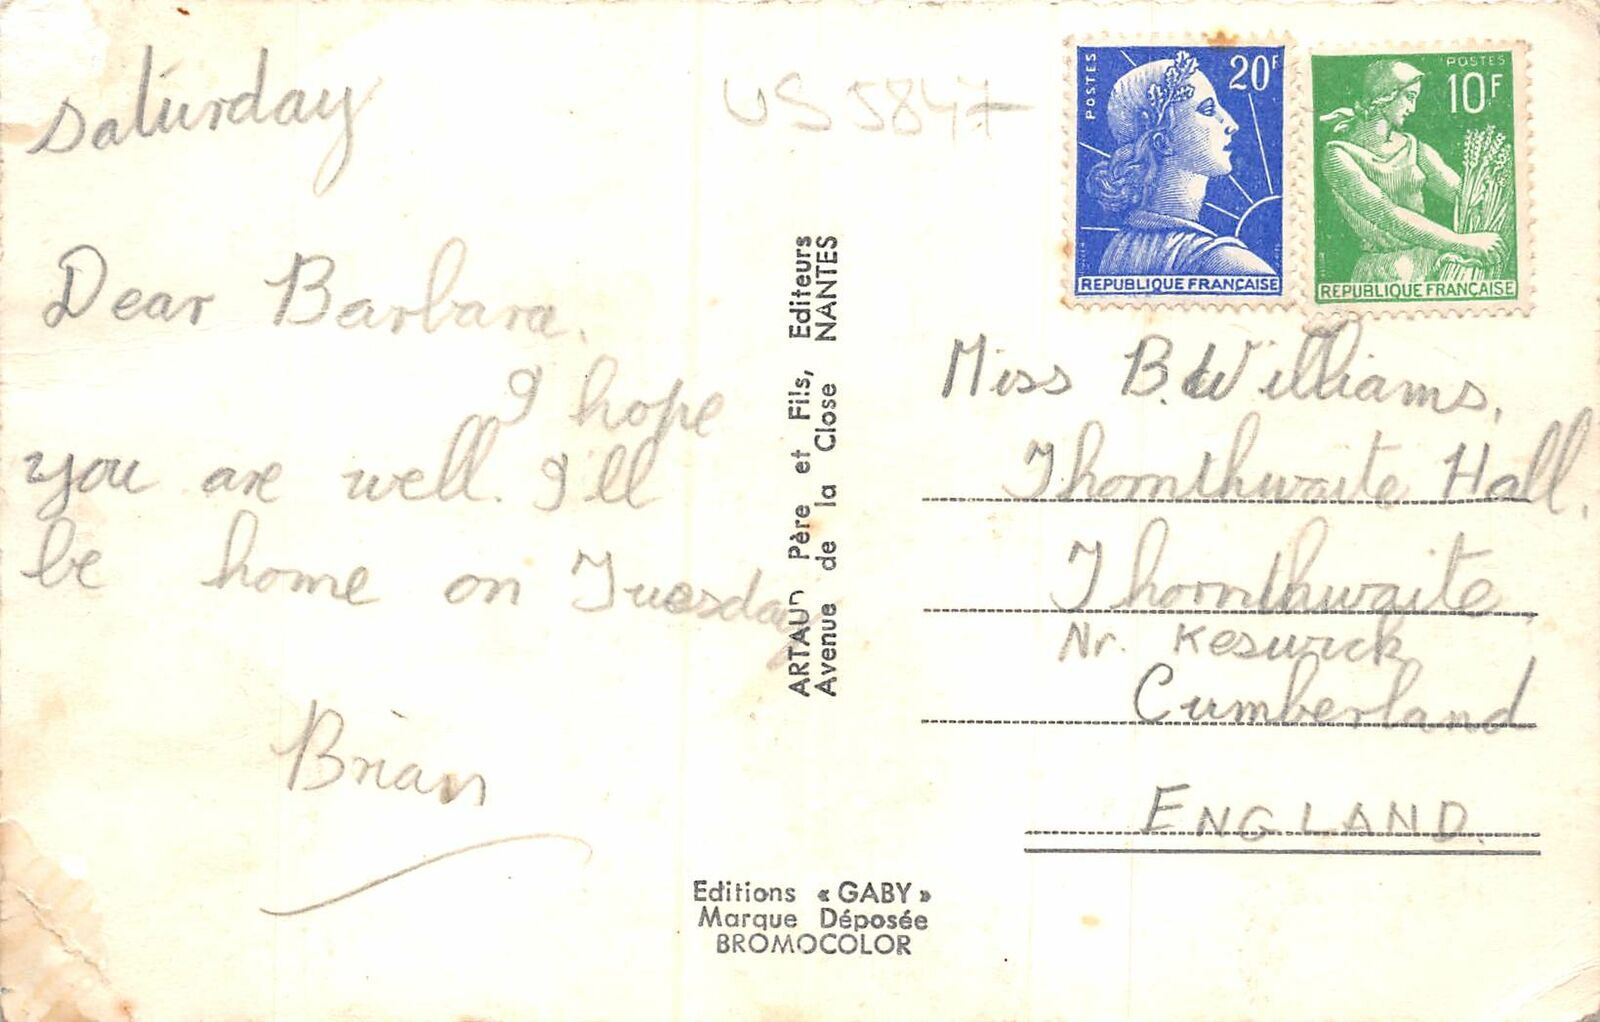 Saturday
Dear Barbara,
I hope
you are well. I'll
be home on Tuesday
Brian
US 5847
ARTAUD Père et Fils, Editeurs
Avenue de la Close NANTES
Editions « GABY »
Marque Déposée
BROMOCOLOR
POSTES
20F
REPUBLIQUE FRANÇAISE
POSTES
10F
REPUBLIQUE FRANÇAISE
Miss B. Williams,
Thornthwaite Hall,
Thornthwaite
Nr. Keswick,
Cumberland
ENGLAND.